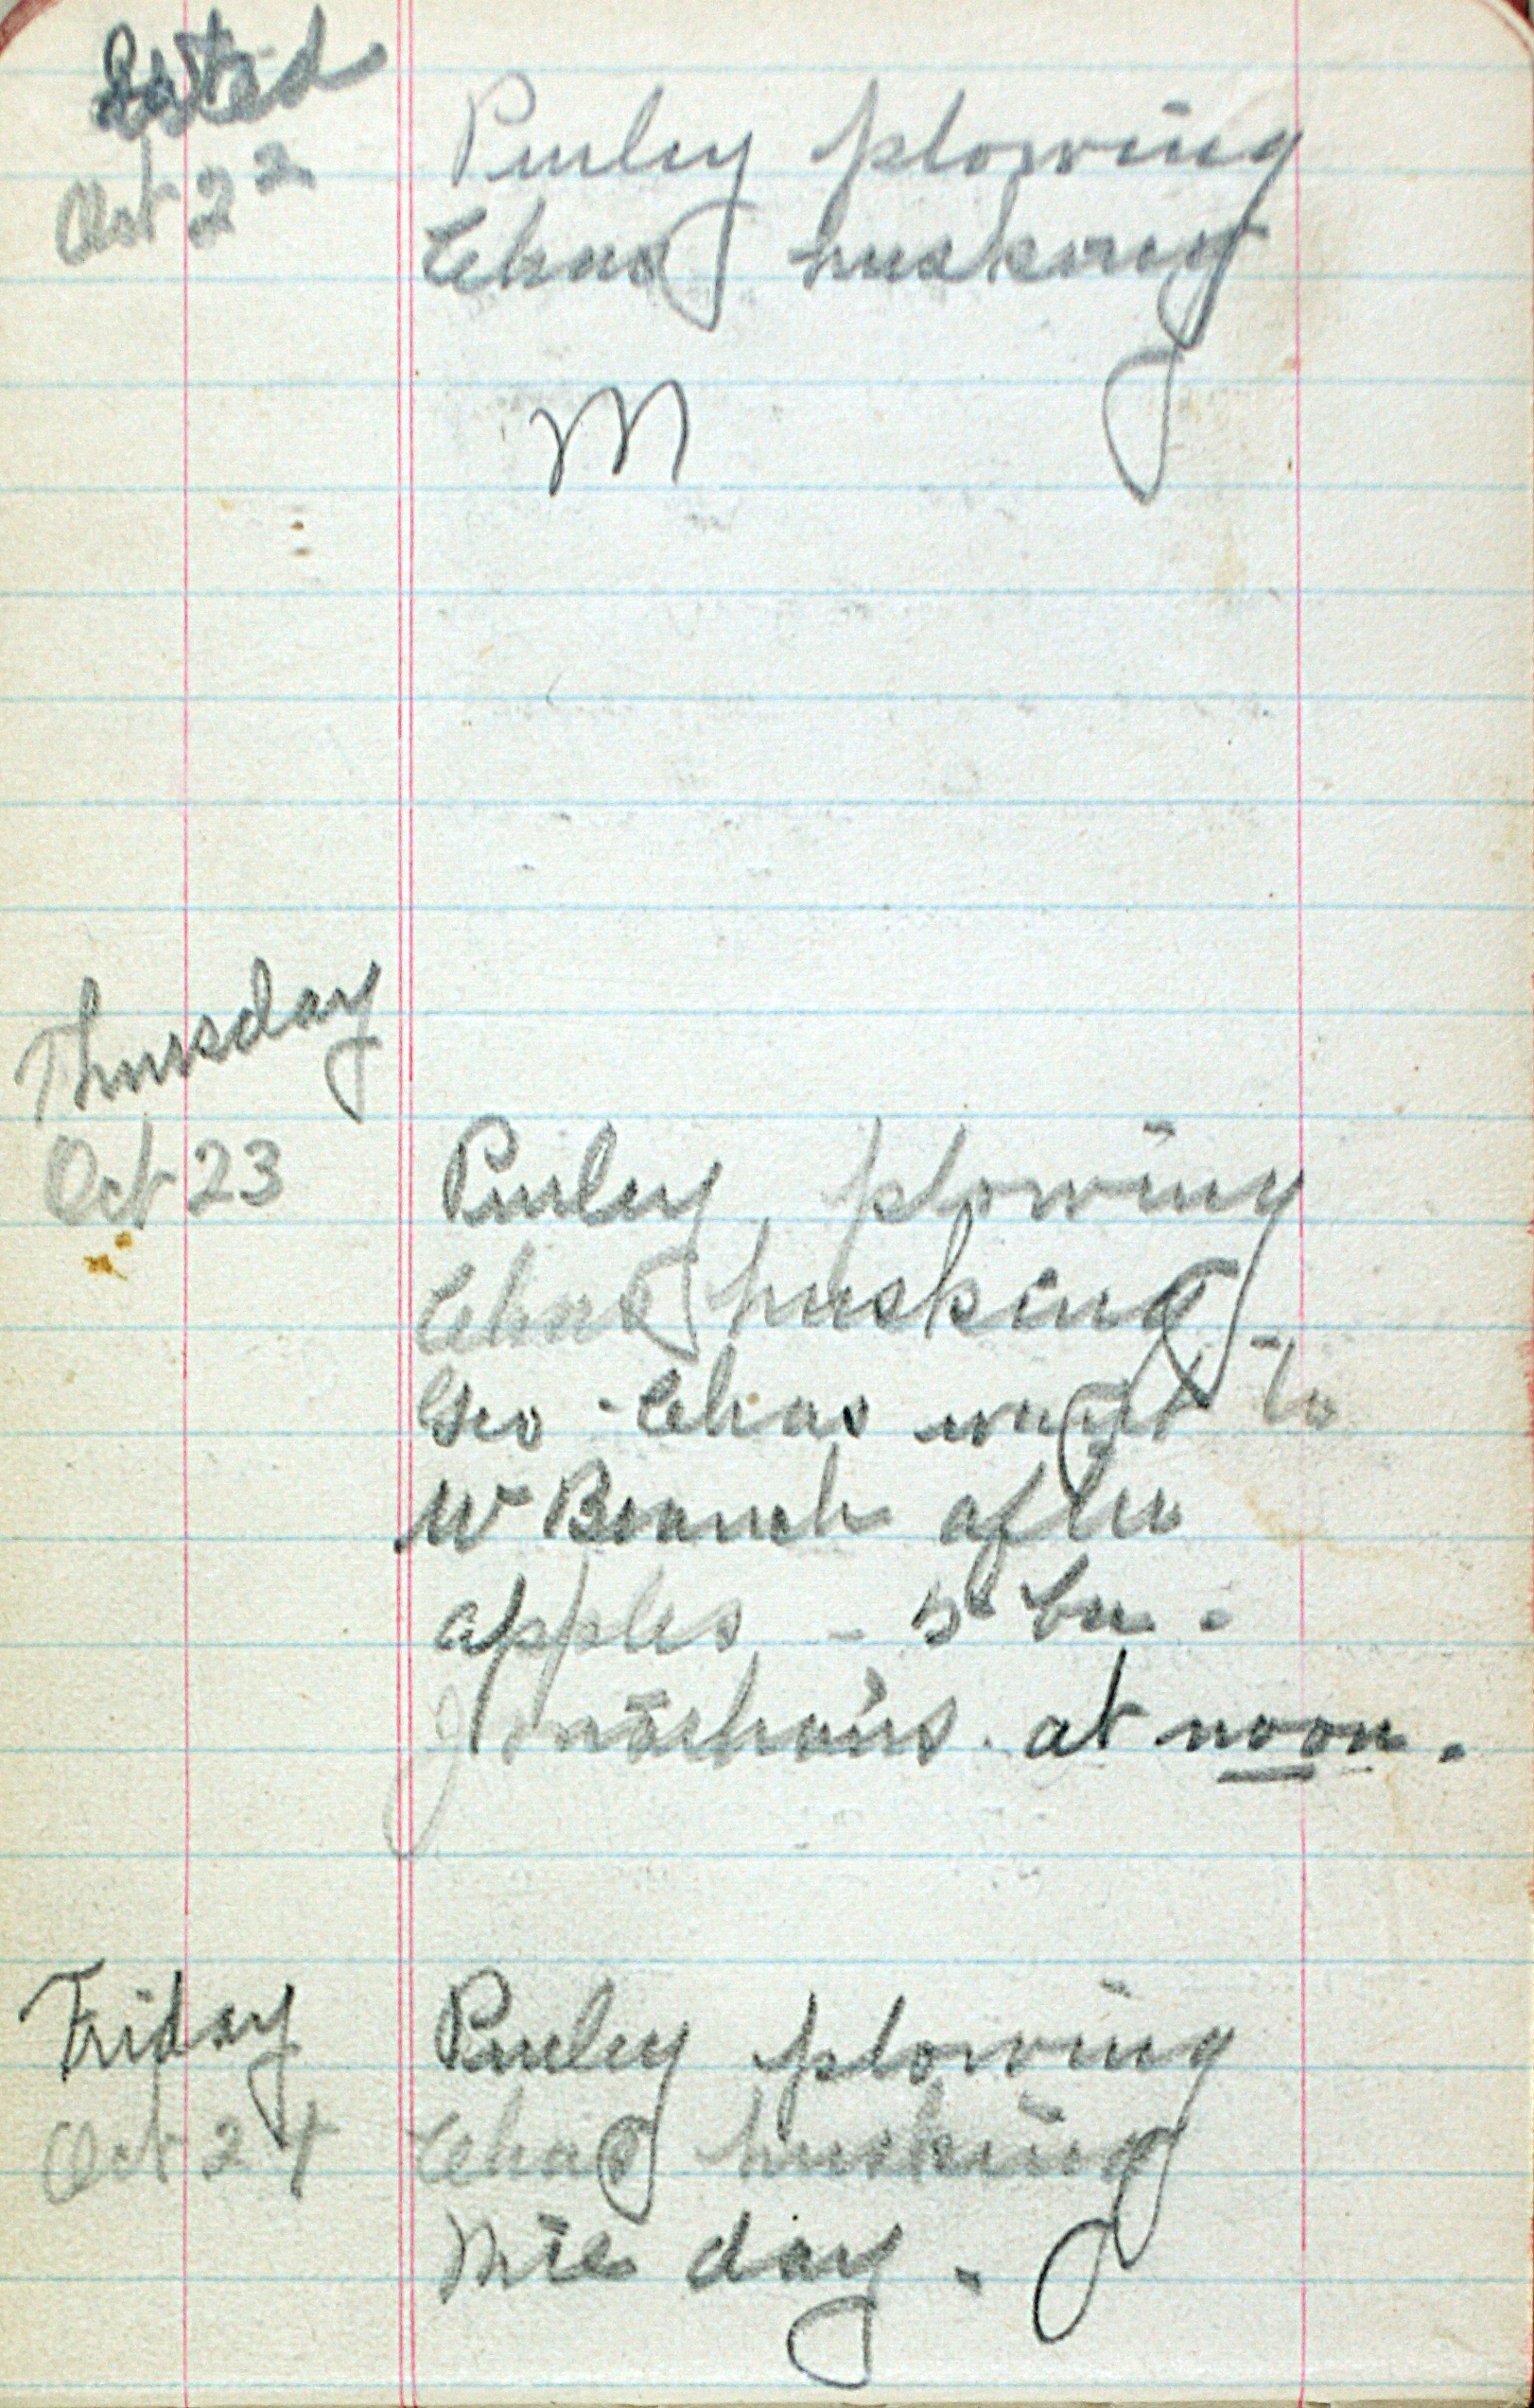 Oct 22
Purley plowing
Chas husking
M
Thursday
Oct 23
Purley plowing
Chas husking
Geo - Chas went to
W Branch after
apples - 5 bu.
at noon.
Friday
Oct 24
Purley plowing
Chas husking
Nice day.